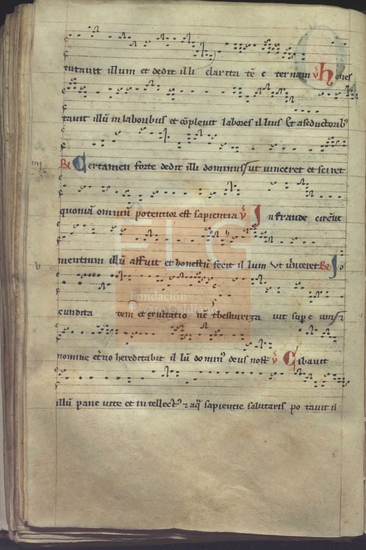 cutavit illum et dedit illi clarita tē e ternam ℣ hones
tavit illū in laboribus et cōplevit labores illius Et a seductorib⁹
℟ Certamen forte dedit illi dominus ut vinceret et sciret
quoniā omniū potentior est sapientia ℣ In fraude circūve
mentium illū affuit et honestū fecit illum Ut vinceret ℟ Io
cundita tem et exultatio nē thesauriza vit sup e um ⁊
nomine et̄no hereditabit il lū domin⁹ deus nost̄ ℣ Cibavit
illū pane vite et intellect⁹ ⁊ aq̄ sapientie salutaris po tavit il